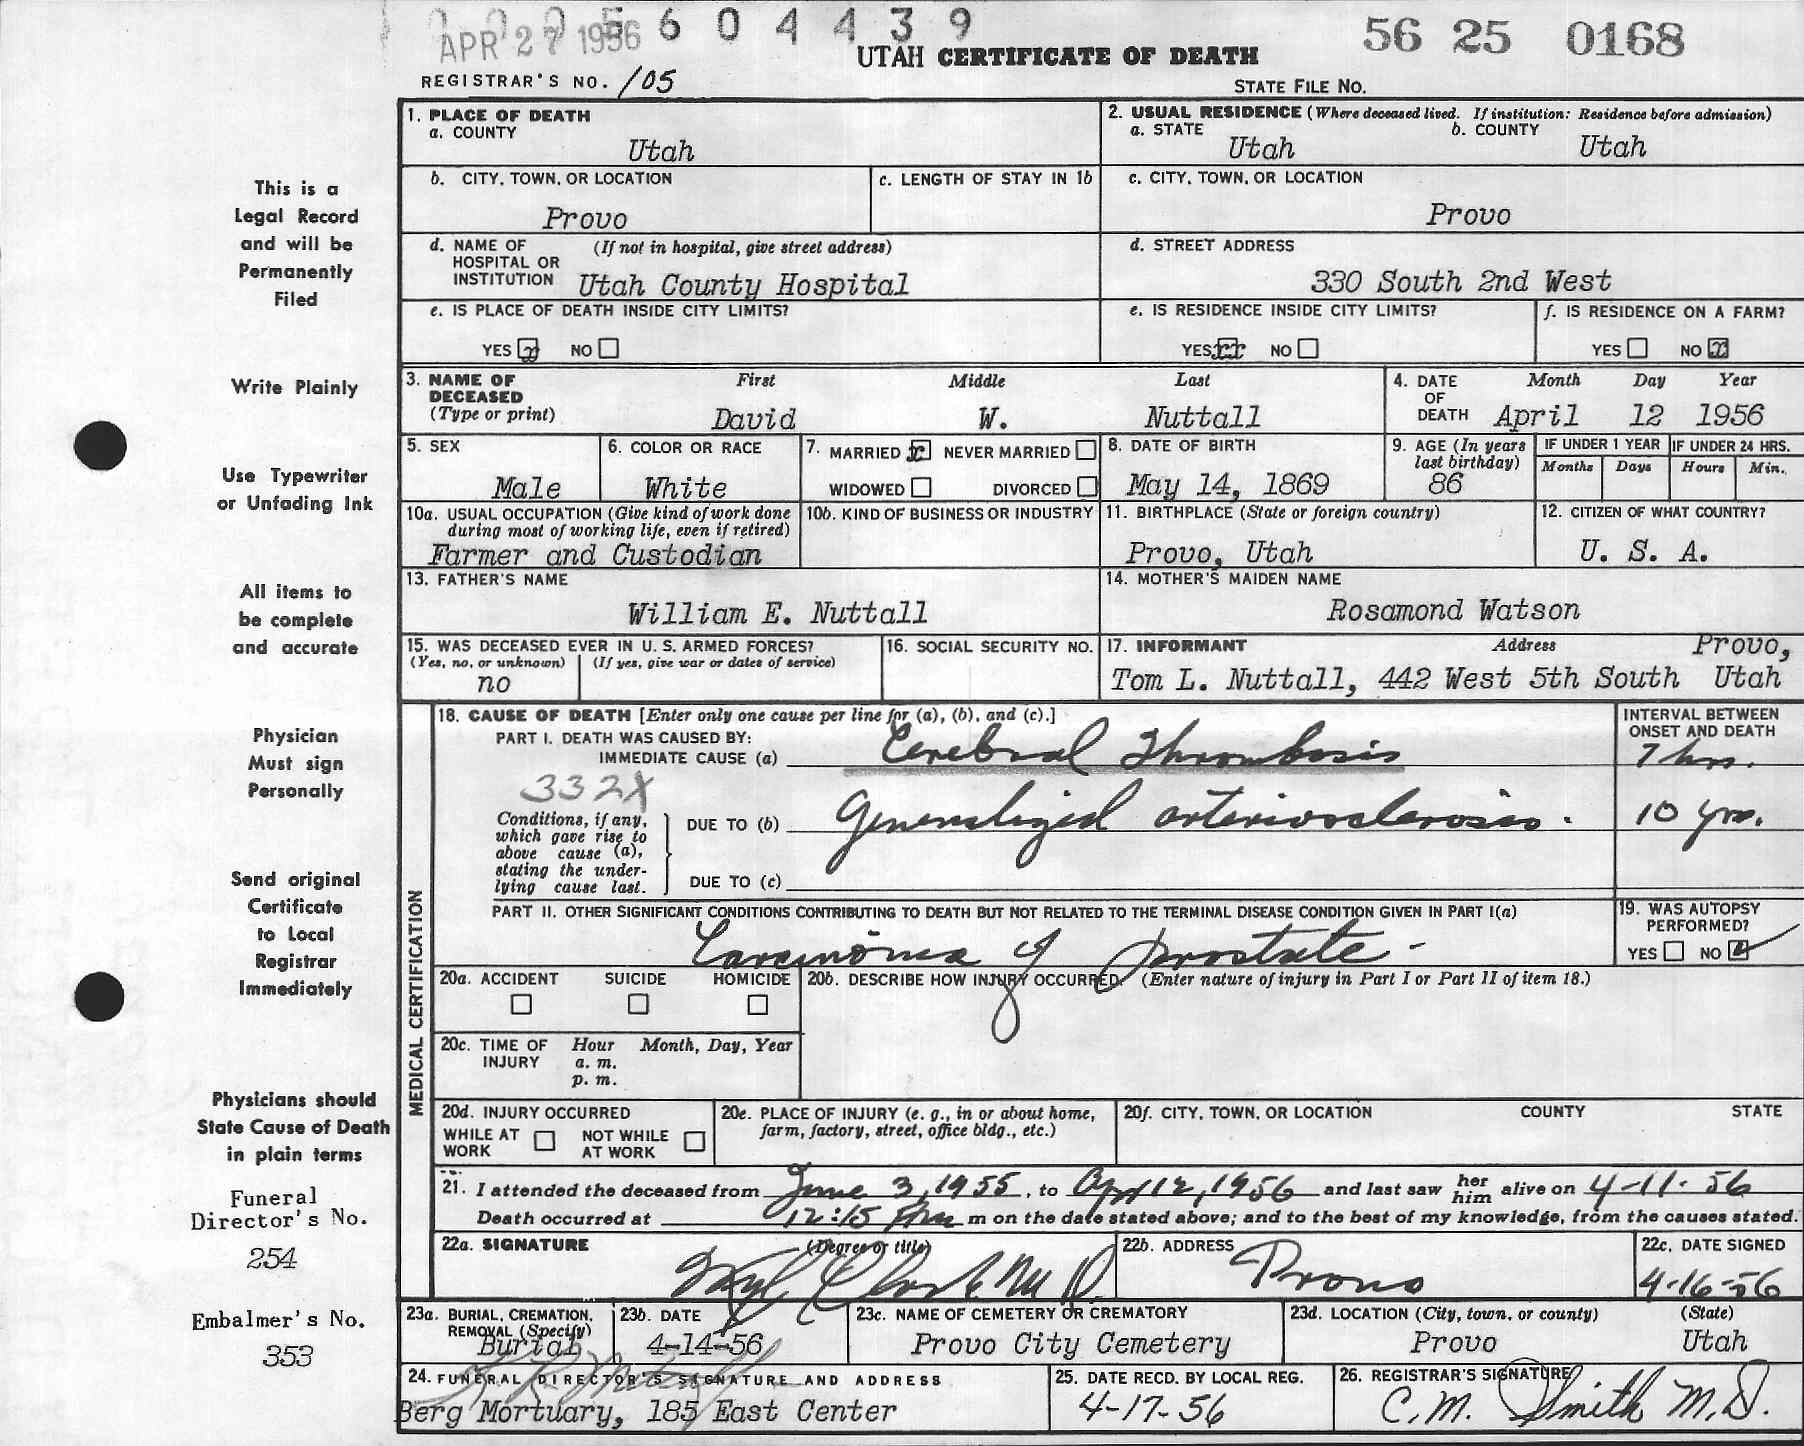 0 0 0 5 6 0 4 4 3 9
APR 27 1956
56 25 0168
UTAH CERTIFICATE OF DEATH
REGISTRAR'S NO. 105
STATE FILE NO.
1. PLACE OF DEATH
a. COUNTY
Utah
2. USUAL RESIDENCE (Where deceased lived. If institution: Residence before admission)
a. STATE b. COUNTY
Utah Utah
b. CITY, TOWN, OR LOCATION c. LENGTH OF STAY IN 1b
Provo
c. CITY, TOWN, OR LOCATION
Provo
d. NAME OF HOSPITAL OR INSTITUTION (If not in hospital, give street address)
Utah County Hospital
d. STREET ADDRESS
330 South 2nd West
e. IS PLACE OF DEATH INSIDE CITY LIMITS?
YES x NO
e. IS RESIDENCE INSIDE CITY LIMITS?
YES xx NO
f. IS RESIDENCE ON A FARM?
YES NO x
3. NAME OF DECEASED (Type or print) First Middle Last
David W. Nuttall
4. DATE OF DEATH Month Day Year
April 12 1956
5. SEX
Male
6. COLOR OR RACE
White
7. MARRIED x NEVER MARRIED
WIDOWED DIVORCED
8. DATE OF BIRTH
May 14, 1869
9. AGE (In years last birthday)
86
IF UNDER 1 YEAR IF UNDER 24 HRS.
Months Days Hours Min.
10a. USUAL OCCUPATION (Give kind of work done during most of working life, even if retired)
Farmer and Custodian
10b. KIND OF BUSINESS OR INDUSTRY
11. BIRTHPLACE (State or foreign country)
Provo, Utah
12. CITIZEN OF WHAT COUNTRY?
U. S. A.
13. FATHER'S NAME
William E. Nuttall
14. MOTHER'S MAIDEN NAME
Rosamond Watson
15. WAS DECEASED EVER IN U. S. ARMED FORCES?
(Yes, no, or unknown) (If yes, give war or dates of service)
no
16. SOCIAL SECURITY NO.
17. INFORMANT Address Provo,
Tom L. Nuttall, 442 West 5th South Utah
MEDICAL CERTIFICATION
18. CAUSE OF DEATH [Enter only one cause per line for (a), (b), and (c).]
INTERVAL BETWEEN ONSET AND DEATH
PART I. DEATH WAS CAUSED BY:
IMMEDIATE CAUSE (a) Cerebral Thrombosis 7 hrs.
332X
Conditions, if any, which gave rise to above cause (a), stating the underlying cause last.
DUE TO (b) Generalized arteriosclerosis. 10 yrs.
DUE TO (c)
PART II. OTHER SIGNIFICANT CONDITIONS CONTRIBUTING TO DEATH BUT NOT RELATED TO THE TERMINAL DISEASE CONDITION GIVEN IN PART I(a)
Carcinoma of prostate -
19. WAS AUTOPSY PERFORMED?
YES NO
20a. ACCIDENT SUICIDE HOMICIDE
20b. DESCRIBE HOW INJURY OCCURRED. (Enter nature of injury in Part I or Part II of item 18.)
20c. TIME OF INJURY Hour Month, Day, Year
a. m.
p. m.
20d. INJURY OCCURRED
WHILE AT WORK NOT WHILE AT WORK
20e. PLACE OF INJURY (e. g., in or about home, farm, factory, street, office bldg., etc.)
20f. CITY, TOWN, OR LOCATION COUNTY STATE
21. I attended the deceased from June 3, 1955, to Apr 12, 1956 and last saw her him alive on 4-11-56
Death occurred at 12:15 m on the date stated above; and to the best of my knowledge, from the causes stated.
22a. SIGNATURE (Degree or title)
Clark M D
22b. ADDRESS
Provo
22c. DATE SIGNED
4-16-56
23a. BURIAL, CREMATION, REMOVAL (Specify)
Burial
23b. DATE
4-14-56
23c. NAME OF CEMETERY OR CREMATORY
Provo City Cemetery
23d. LOCATION (City, town, or county) (State)
Provo Utah
24. FUNERAL DIRECTOR'S SIGNATURE AND ADDRESS
Berg Mortuary, 185 East Center
25. DATE RECD. BY LOCAL REG.
4-17-56
26. REGISTRAR'S SIGNATURE
C. M. Smith M. D.
This is a
Legal Record
and will be
Permanently
Filed
Write Plainly
Use Typewriter
or Unfading Ink
All items to
be complete
and accurate
Physician
Must sign
Personally
Send original
Certificate
to Local
Registrar
Immediately
Physicians should
State Cause of Death
in plain terms
Funeral
Director's No.
254
Embalmer's No.
353